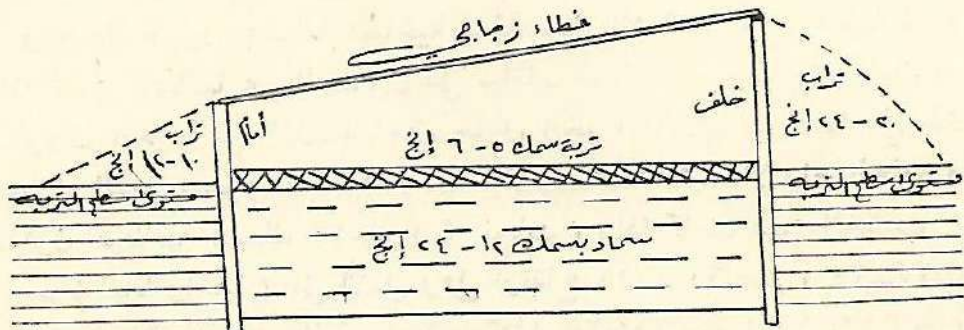 غطاء زجاجي
تراب
٢٠ - ٢٤ إنج
خلف
أمام
تراب
١٠ - ١٢ إنج
تربة سمك ٥ - ٦ إنج
مستوى سطح التربه
مستوى سطح التربه
سماد بسمك ١٢ - ٢٤ إنج